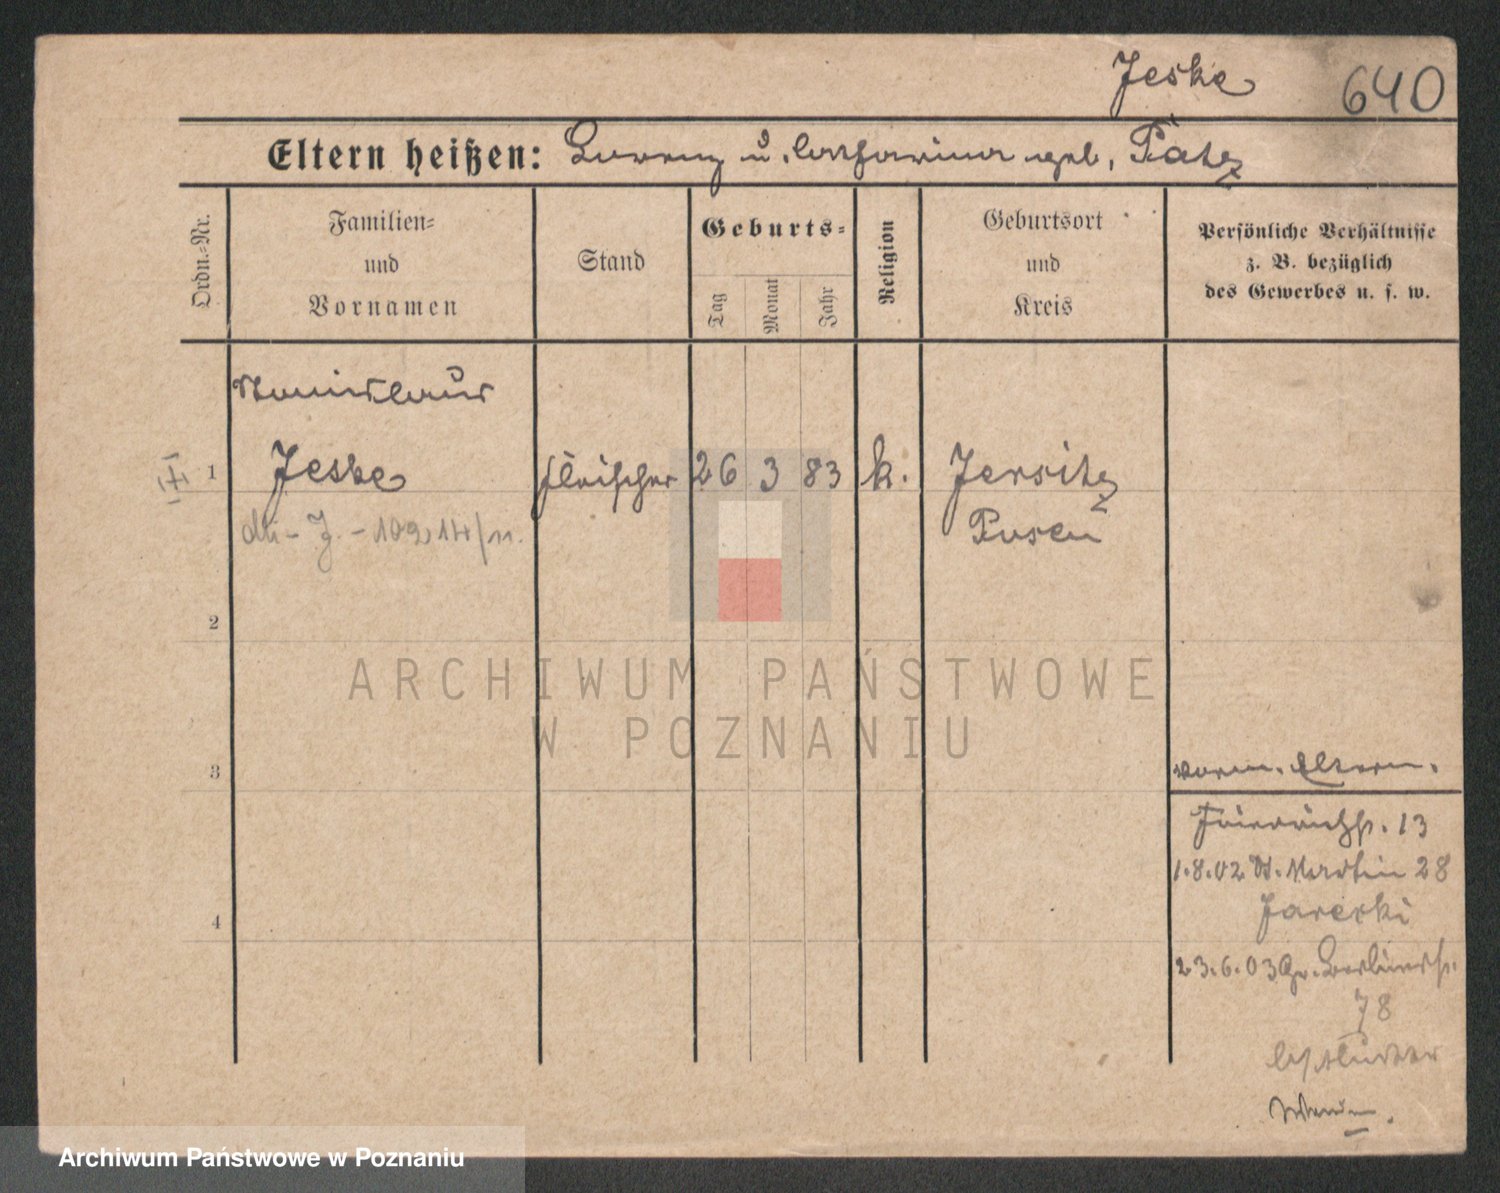 Jeske
640
Eltern heißen: Lorenz u. Catharina geb. Pätz
Ordn.-Nr.
Familien-
und
Vornamen
Stand
Geburts-
Tag
Monat
Jahr
Religion
Geburtsort
und
Kreis
Persönliche Verhältnisse
z. B. bezüglich
des Gewerbes u. s. w.
Stanislaus
1 Jeske Fleischer 26 3 83 k. Jersitz
Posen
2
3
vorm. Eltern.
Friedrichstr. 13
1.8.02 St. Martin 28
Jarecki
4
23.6.03 Gr. Berlinerstr.
78
Wenden.
ARCHIWUM PAŃSTWOWE
W POZNANIU
Archiwum Państwowe w Poznaniu